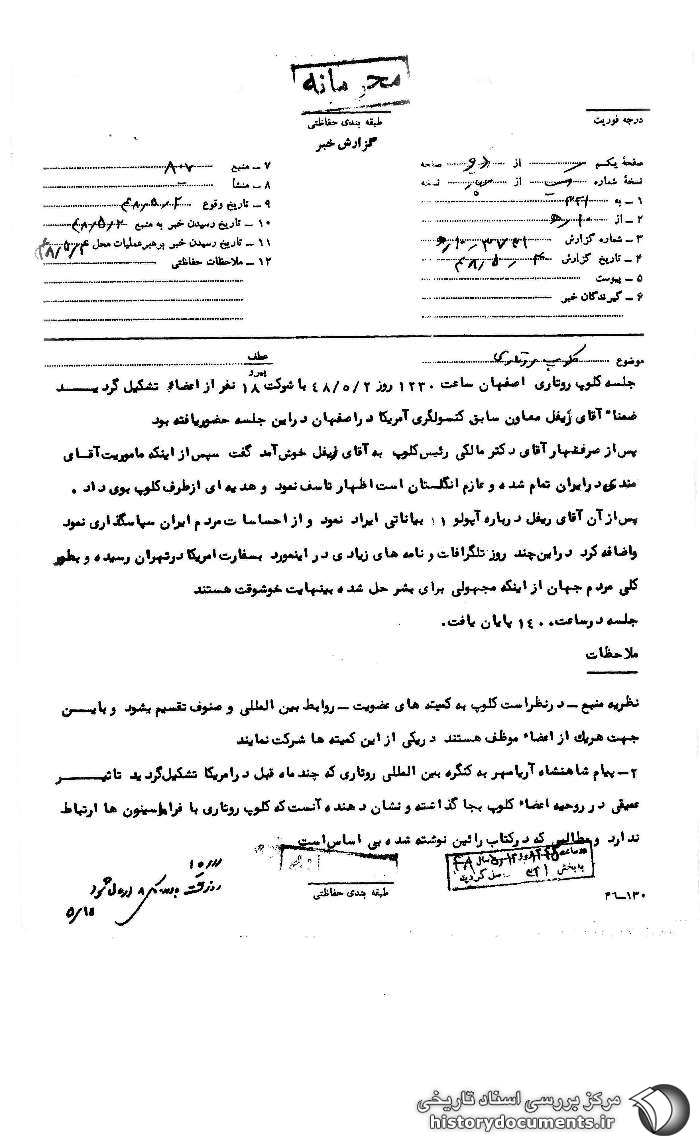 محرمانه
طبقه بندی حفاظتی
گزارش خبر
درجه فوریت
صفحهٔ یکم از دو صفحه
نسخهٔ شماره از نسخه
۱ ـ به ۳۴۱
۲ ـ از ۱۰ﻫ
۳ ـ شماره گزارش
۴ ـ تاریخ گزارش ۴۸٫۵٫۴
۵ ـ پیوست
۶ ـ گیرندگان خبر
۷ ـ منبع ۸۰۷
۸ ـ منشأ
۹ ـ تاریخ وقوع ۴۸٫۵٫۲
۱۰ ـ تاریخ رسیدن خبر به منبع ۴۸/۵/۲
۱۱ ـ تاریخ رسیدن خبر برهبرعملیات محل ۴۸/۵/۴
۱۲ ـ ملاحظات حفاظتی
موضوع کلوپ روتاری
عطف
پیرو
جلسه کلوپ روتاری اصفهان ساعت ۱۲۳۰ روز ۴۸/۵/۲ با شوکت ۱۸ نفر از اعضاء تشکیل گردید
ضمناً آقای ریفل معاون سابق کنسولگری آمریکا در اصفهان در این جلسه حضور یافته بود
پس از صرفنهار آقای دکتر مالکی رئیس کلوپ به آقای ریفل خوش آمد گفت سپس از اینکه ماموریت آقای
مندی در ایران تمام شده و عازم انگلستان است اظهار تاسف نمود و هدیه ای از طرف کلوپ بوی داد .
پس از آن آقای ریفل درباره آپولو ۱۱ بیاناتی ایراد نمود و از احساسات مردم ایران سپاسگذاری نمود
واضافه کرد در این چند روز تلگرافات و نامه های زیادی در اینمورد بسفارت امریکا در تهران رسیده و بطور
کلی مردم جهان از اینکه مجهولی برای بشر حل شده بینهایت خوشوقت هستند
جلسه در ساعت ۱۴۰۰ پایان یافت.
ملاحظات
نظریه منبع ـ در نظر است کلوپ به کمیته های عضویت ـ روابط بین المللی و صنوف تقسیم بشود و باین
جهت هریک از اعضاء موظف هستند در یکی از این کمیته ها شرکت نمایند
۲ـ پیام شاهنشاه آریامهر به کنگره بین المللی روتاری که چند ماه قبل در امریکا تشکیل گردید تاثیر
عمیقی در روحیه اعضاء کلوپ بجا گذاشته و نشان دهنده آنست که کلوپ روتاری با فراماسیون ها ارتباط
ندارد و مطالبی که در کتاب رائین نوشته شده بی اساس است
به بخش ۳۴۱
طبقه بندی حفاظتی
۴۶ـ۱۳۰
۵/۱۵
مرکز بررسی اسناد تاریخی
historydocuments.ir